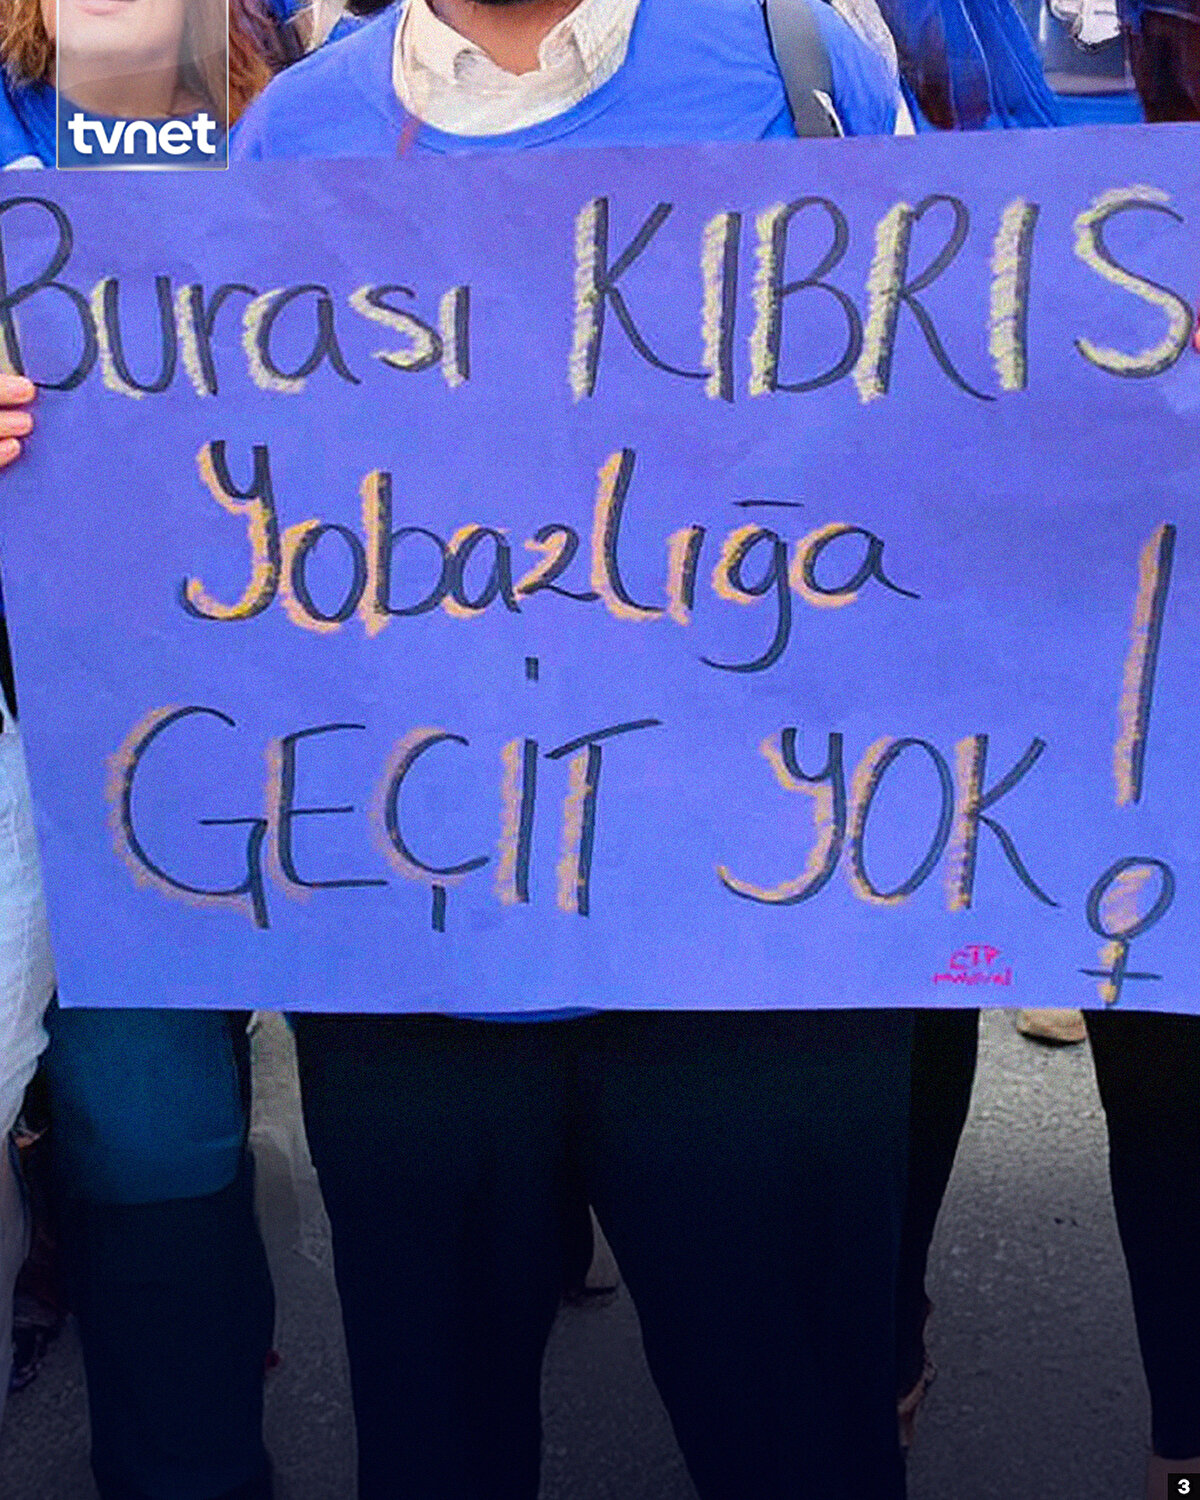 tvnet
Burası KIBRIS
Yobazlığa
GEÇİT YOK !
CTP
3